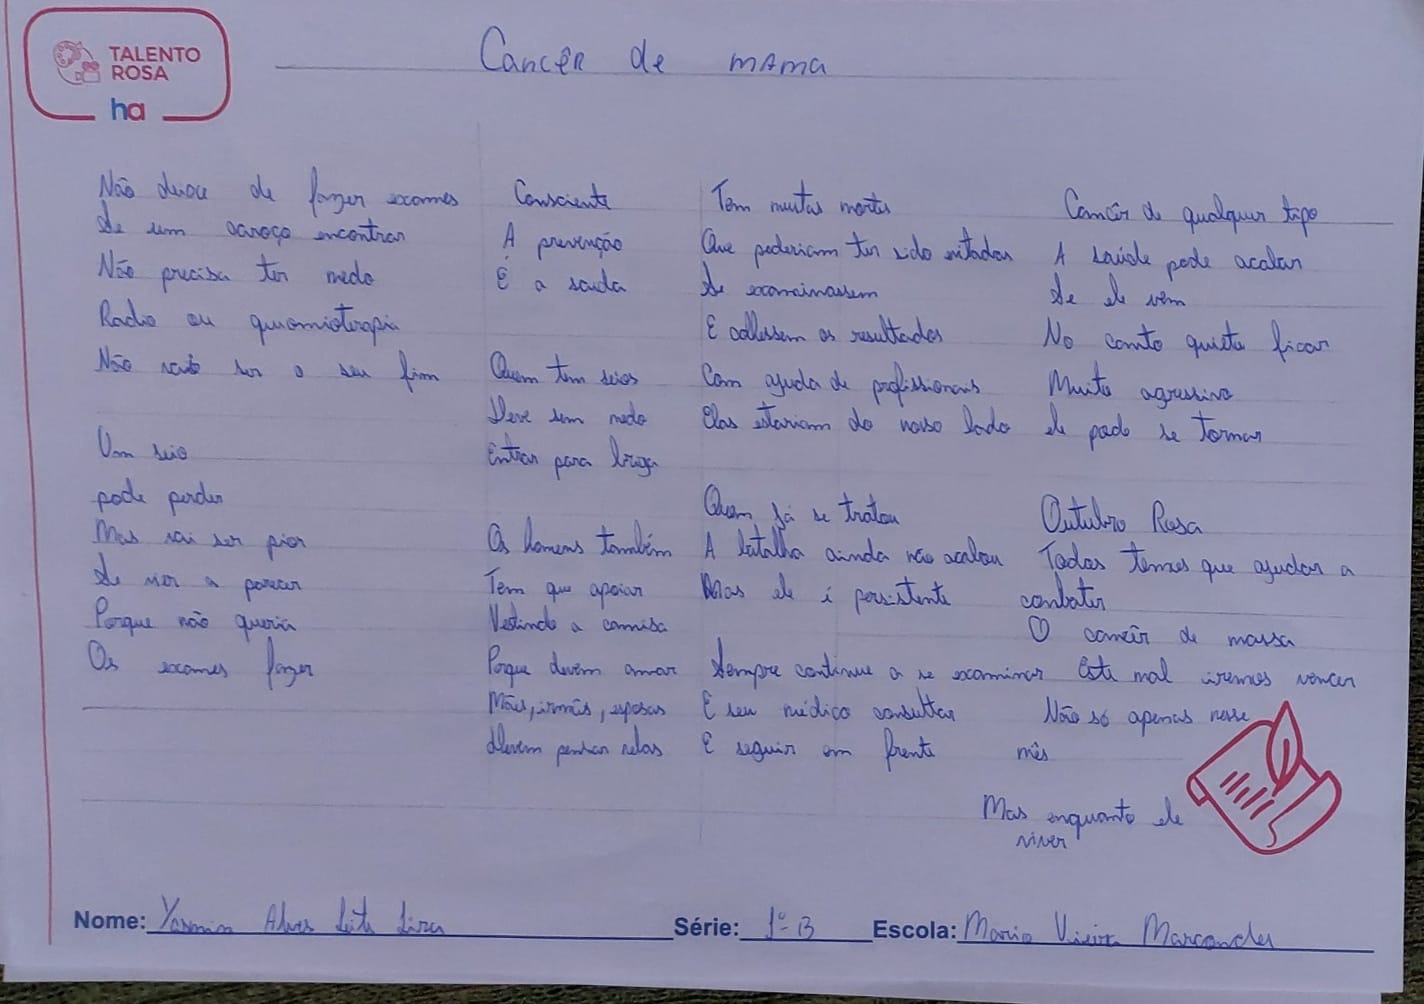 TALENTO
ROSA
ha
Cancêr de mama
Não deixe de fazer exames
Se um caroço encontrar
Não precisa ter medo
Radio ou quiomioterapia
Não vai ser o seu fim
Um seio
pode perder
Mas vai ser pior
Se vier a parecer
Porque não queria
Os exames fazer
Consciente
A prevenção
É a saida
Quem tem seios
Deve sem medo
Entrar para briga
Os homens também
Tem que apoiar
Vestindo a camisa
Porque devem amar
Mães, irmãs, esposas
Devem pensar nelas
Tem muitas mortes
Que poderiam ter sido evitadas
Se examinassem
E colhessem os resultados
Com ajuda de profissionais
Elas estariam do nosso lado
Quem já se tratou
A batalha ainda não acabou
Mas ele é persistente
Sempre continue a se examinar
E seu médico consultar
E seguir em frente
Cancêr de qualquer tipo
A saúde pode acabar
Se ele vêm
No canto quieto ficar
Muito agressivo
ele pode se tornar
Outubro Rosa
Todos temos que ajudar a
combater
O cancêr de massa
Este mal iremos vencer
Não só apenas nesse
mês
Mas enquanto ele
viver
Nome: Yasmin Alves Leite Lira
Série: 1º B
Escola: Maria Vieira Marcondes